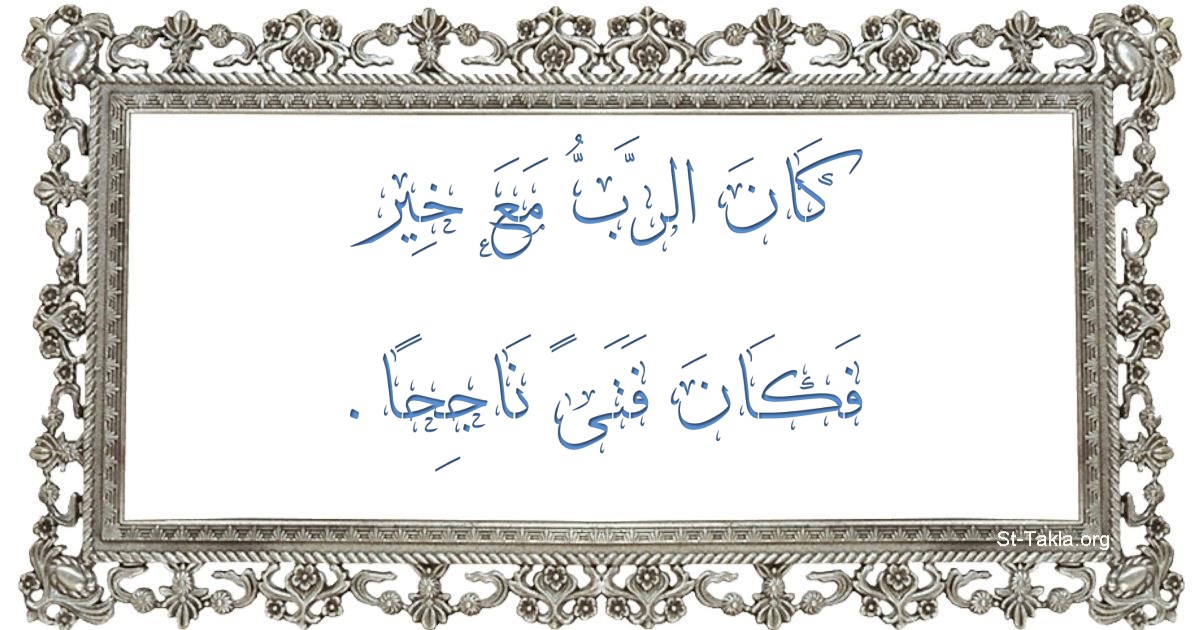 كَانَ الرَّبُّ مَعَ خِير
فَكَانَ فَتَىً نَاجِحًا .
St-Takla.org